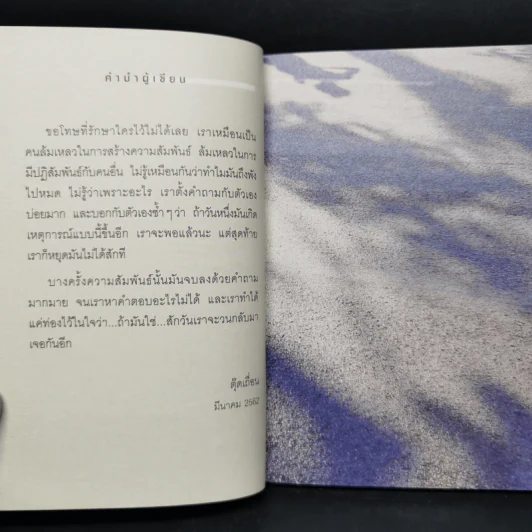 คำนำผู้เขียน
ขอโทษที่รักษาใครไว้ไม่ได้เลย เราเหมือนเป็น
คนล้มเหลวในการสร้างความสัมพันธ์ ล้มเหลวในการ
มีปฏิสัมพันธ์กับคนอื่น ไม่รู้เหมือนกันว่าทำไมมันถึงพัง
ไปหมด ไม่รู้ว่าเพราะอะไร เราตั้งคำถามกับตัวเอง
บ่อยมาก และบอกกับตัวเองซ้ำๆ ว่า ถ้าวันหนึ่งมันเกิด
เหตุการณ์แบบนี้ขึ้นอีก เราจะพอแล้วนะ แต่สุดท้าย
เราก็หยุดมันไม่ได้สักที
บางครั้งความสัมพันธ์นั้นมันจบลงด้วยคำถาม
มากมาย จนเราหาคำตอบอะไรไม่ได้ และเราทำได้
แค่ท่องไว้ในใจว่า...ถ้ามันใช่...สักวันเราจะวนกลับมา
เจอกันอีก
ตุ๊ดเถื่อน
มีนาคม 2562